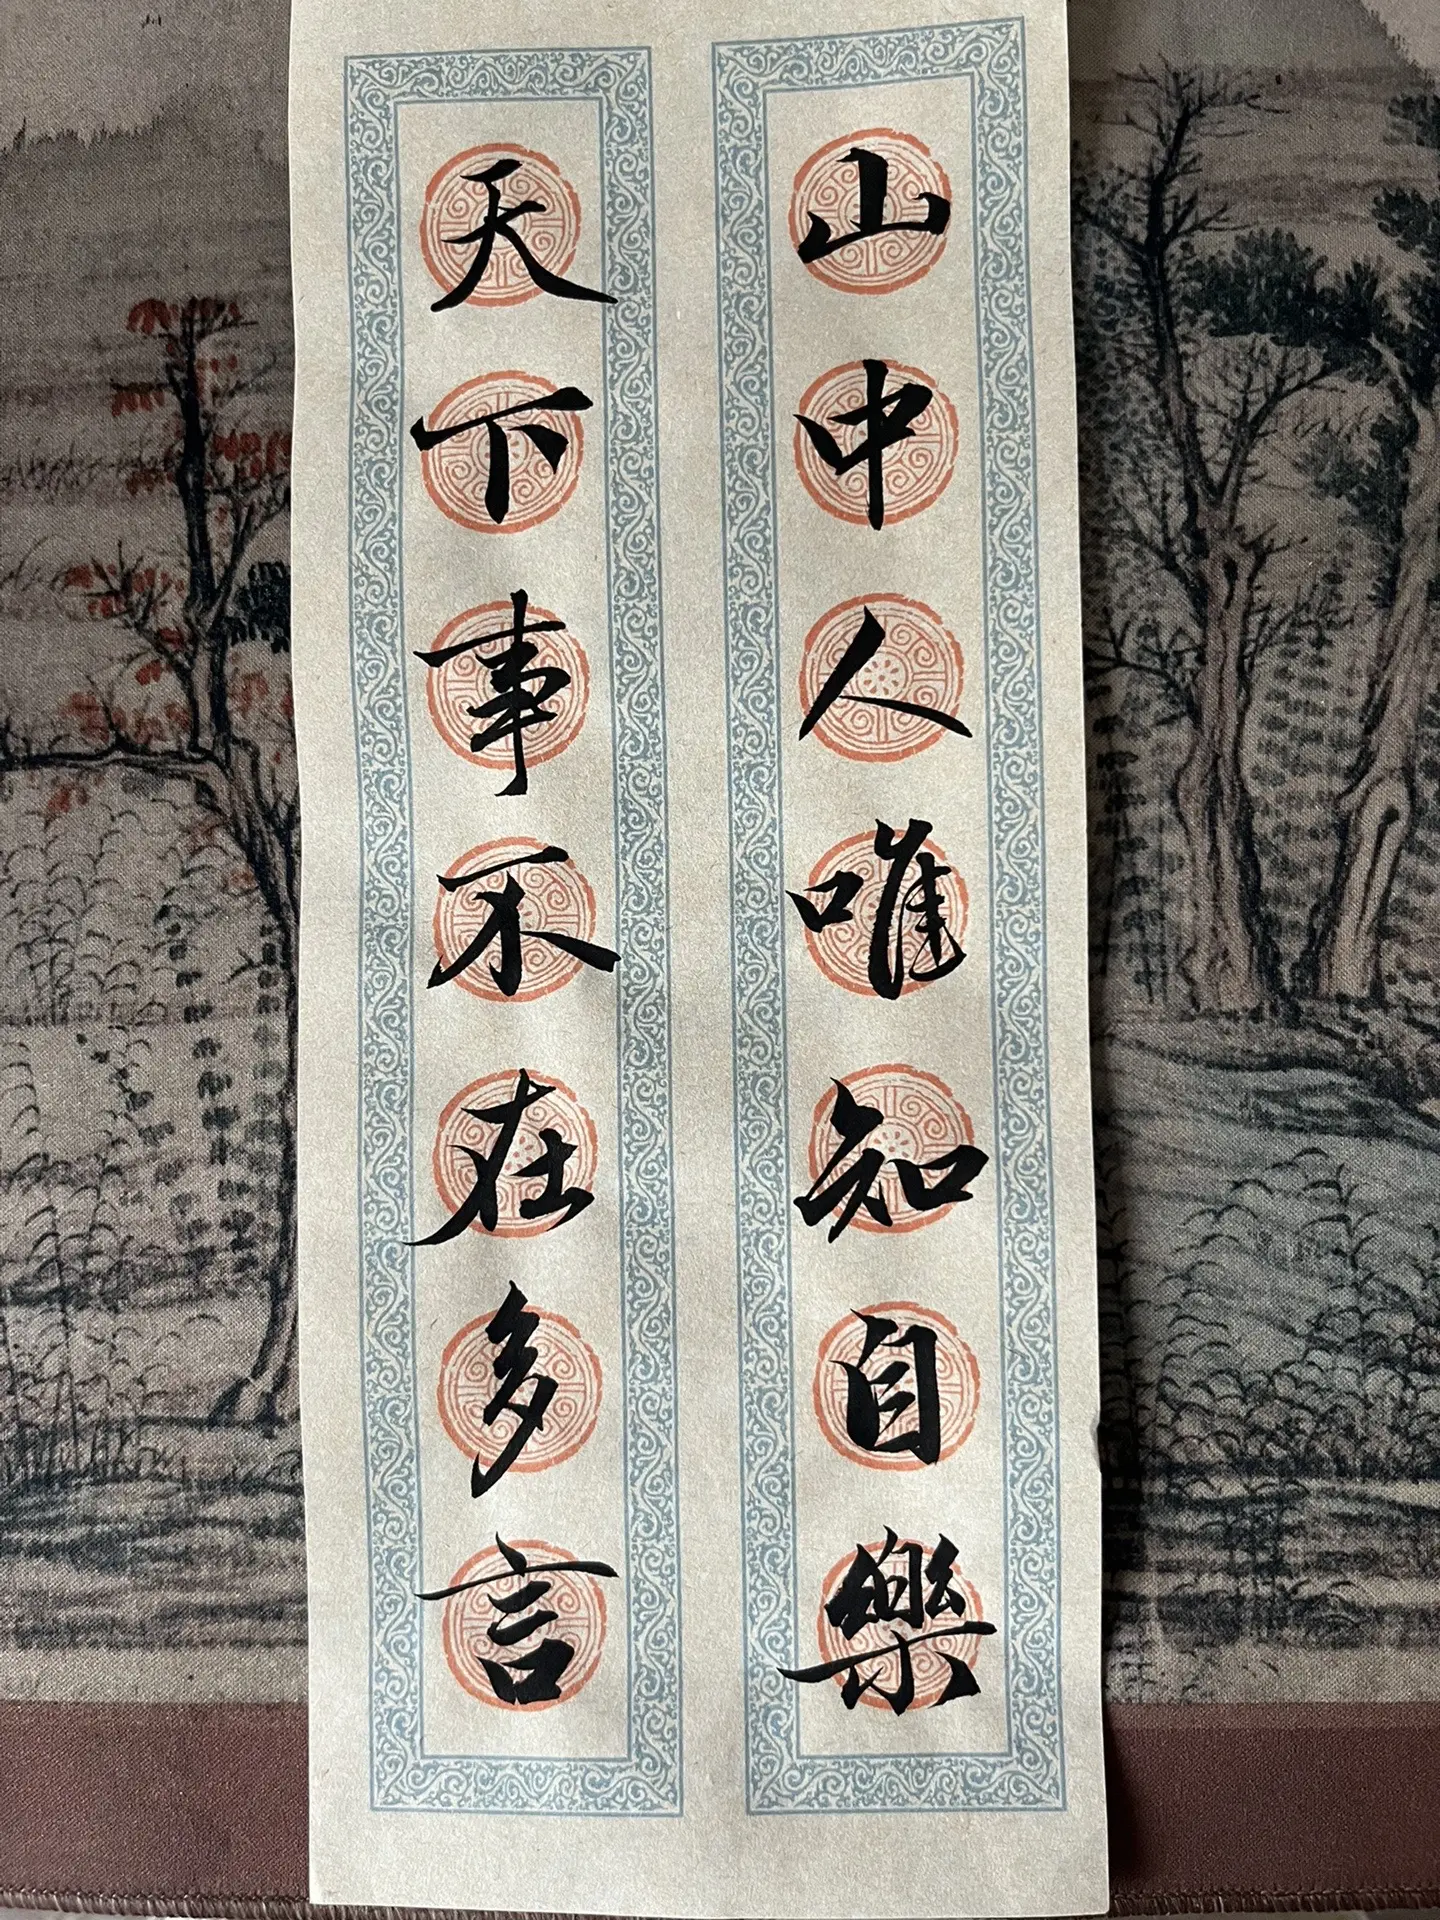 山中人唯知自樂
天下事不在多言